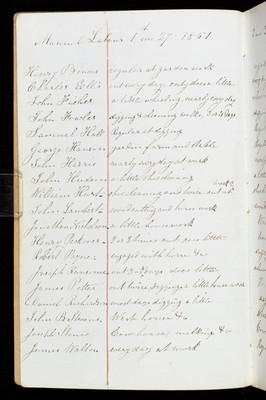 Manual Labour 1 mo 27 - 1851
Henry Binns regular at garden work
Charles Ellis out every day only does a little
John Fisher a little wheeling, nearly every day
John Fowler digging & cleaning walks, 3 or 4 days
Samuel Hall Regular at digging
George Hanson garden farm and stable
John Harris nearly every day at work
John a little shoe cleaning
William shoe cleaning and house out at work
John Lambert wood cutting and house work
Jonathan Nicholson a little housework
Henry 2 or 3 hours out does little
Robert Payne engaged with horse &c
Joseph out 2 or 3 days does little
James Peter out twice digging & little house work
Daniel Richardson most days digging a little
John B. Stevens Wash house &c
Joseph Cowhouse, milking &c
James Walton every day at work